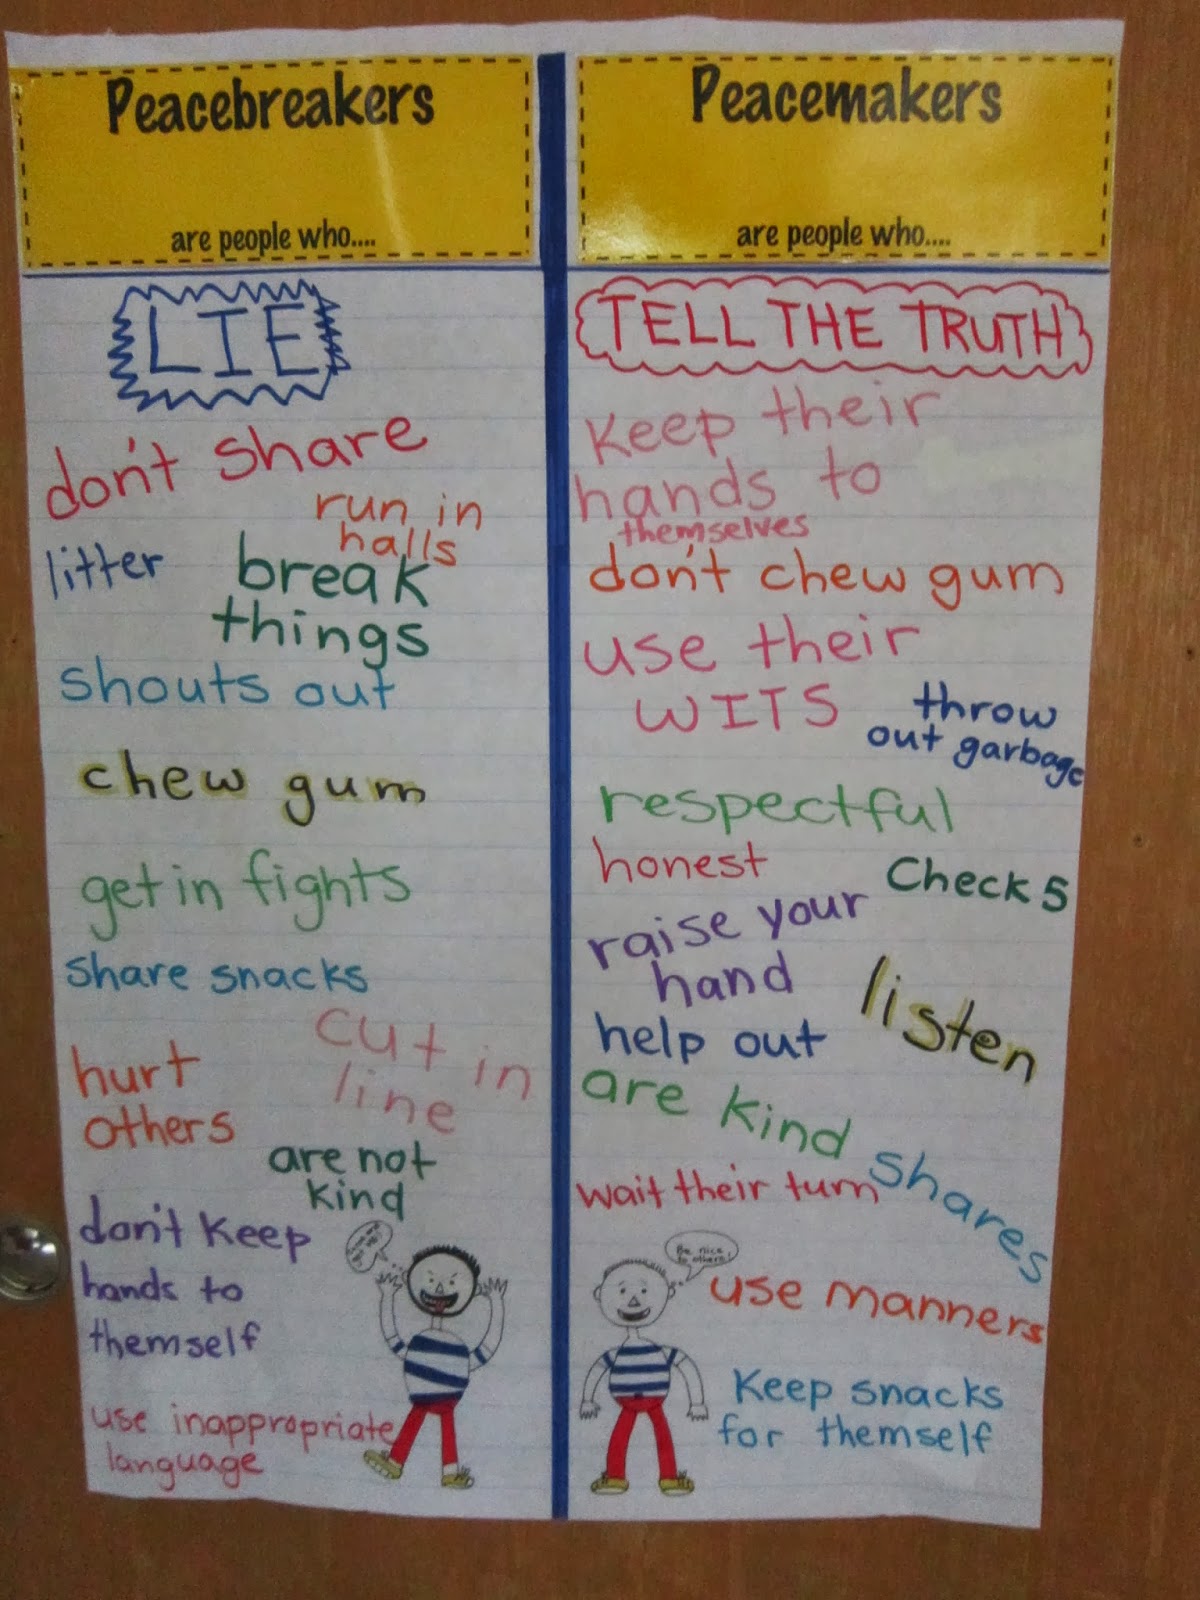 Peacebreakers
are people who....
LIE
don't share
run in
halls
litter
break
things
shouts out
chew gum
get in fights
share snacks
cut in
line
hurt
others
are not
kind
don't keep
hands to
themself
use inappropriate
language
Peacemakers
are people who....
TELL THE TRUTH
keep their
hands to
themselves
don't chew gum
use their
WITS
throw
out garbage
respectful
honest
Check 5
raise your
hand
listen
help out
are kind
shares
wait their turn
Be nice
to others!
use manners
Keep snacks
for themself